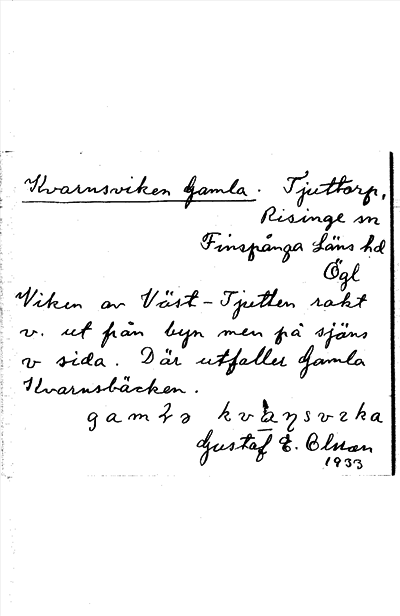 Kvarnsviken Gamla. Tjuttorp,
Risinge sn
Finspånga Läns hd
Ögl
Viken av Väst-Tjutten rakt
v. ut från byn men på sjöns
v sida. Där utfaller Gamla
Kvarnsbäcken.
Gustaf E. Olsson
1933